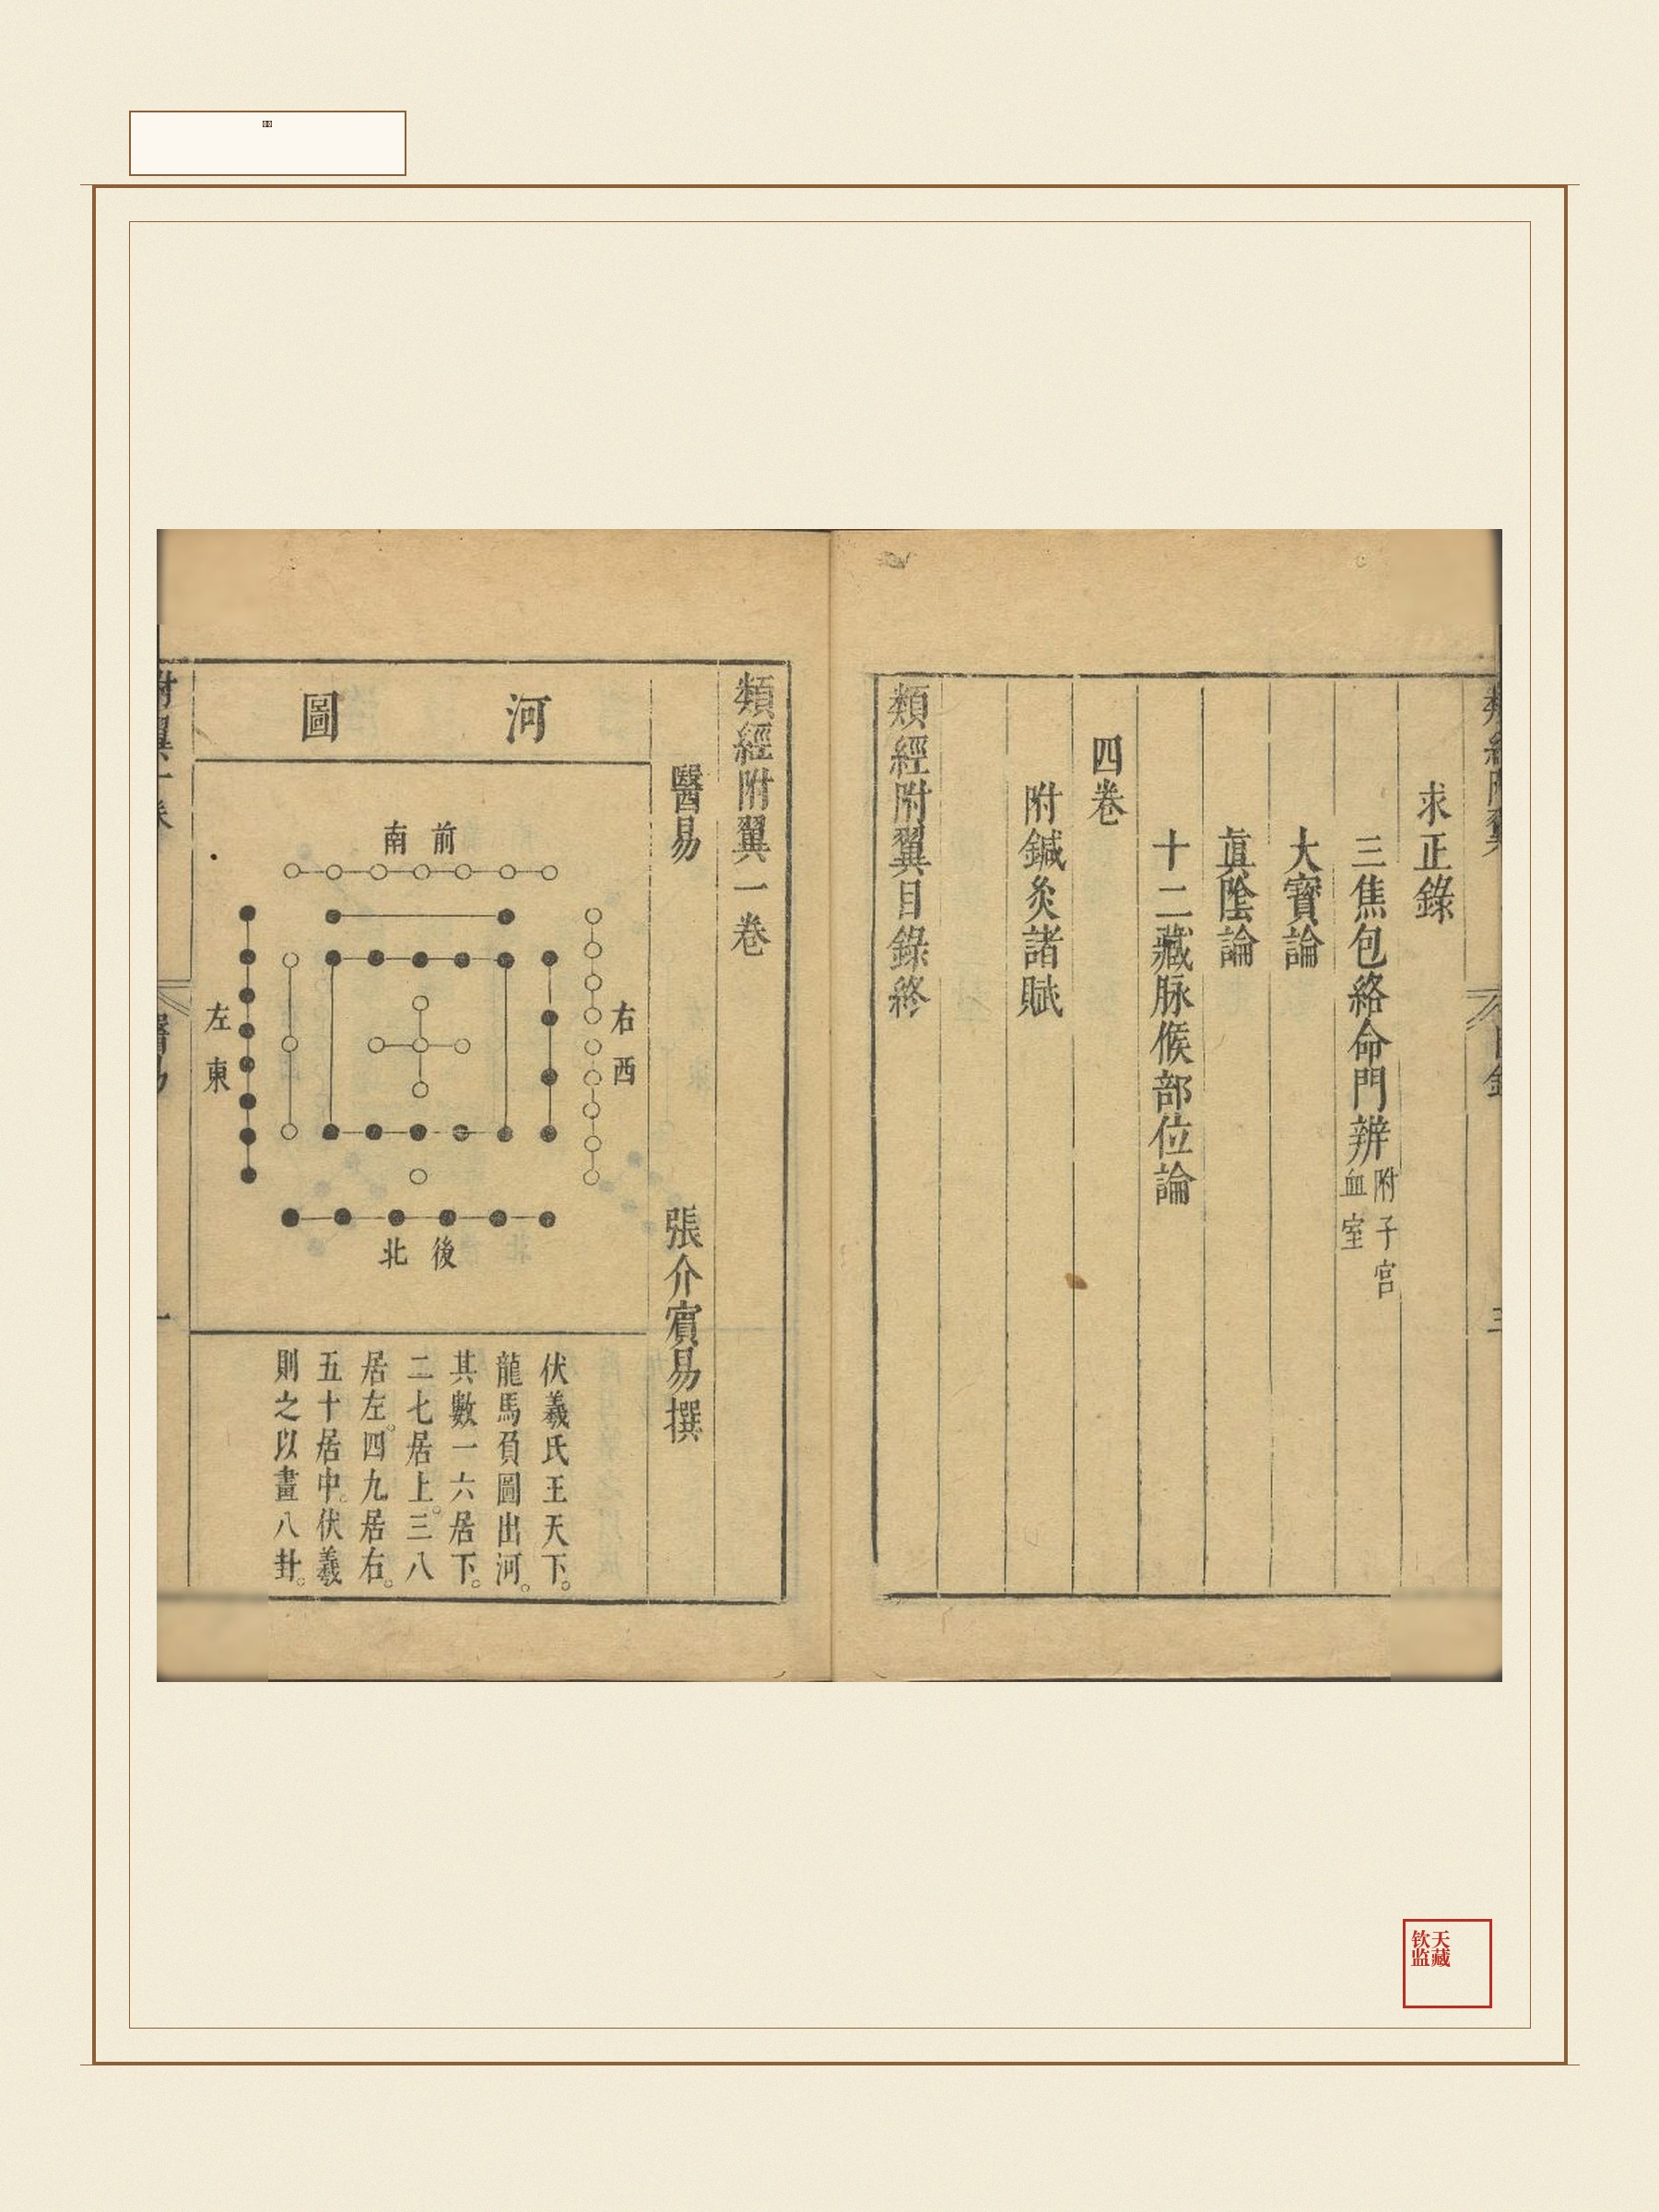 類經附翼
求正錄
三焦包絡命門辨附子宮血室
大寶論
眞陰論
十二藏脉候部位論
四卷
附鍼灸諸賦
類經附翼目錄終
類經附翼一卷
醫易
張介賓易撰
河圖
前南
右西
左東
後北
伏羲氏王天下。
龍馬負圖出河。
其數一六居下。
二七居上。三八
居左。四九居右。
五十居中。伏羲
則之以畫八卦。
附翼一卷
醫易
一
天藏
钦监